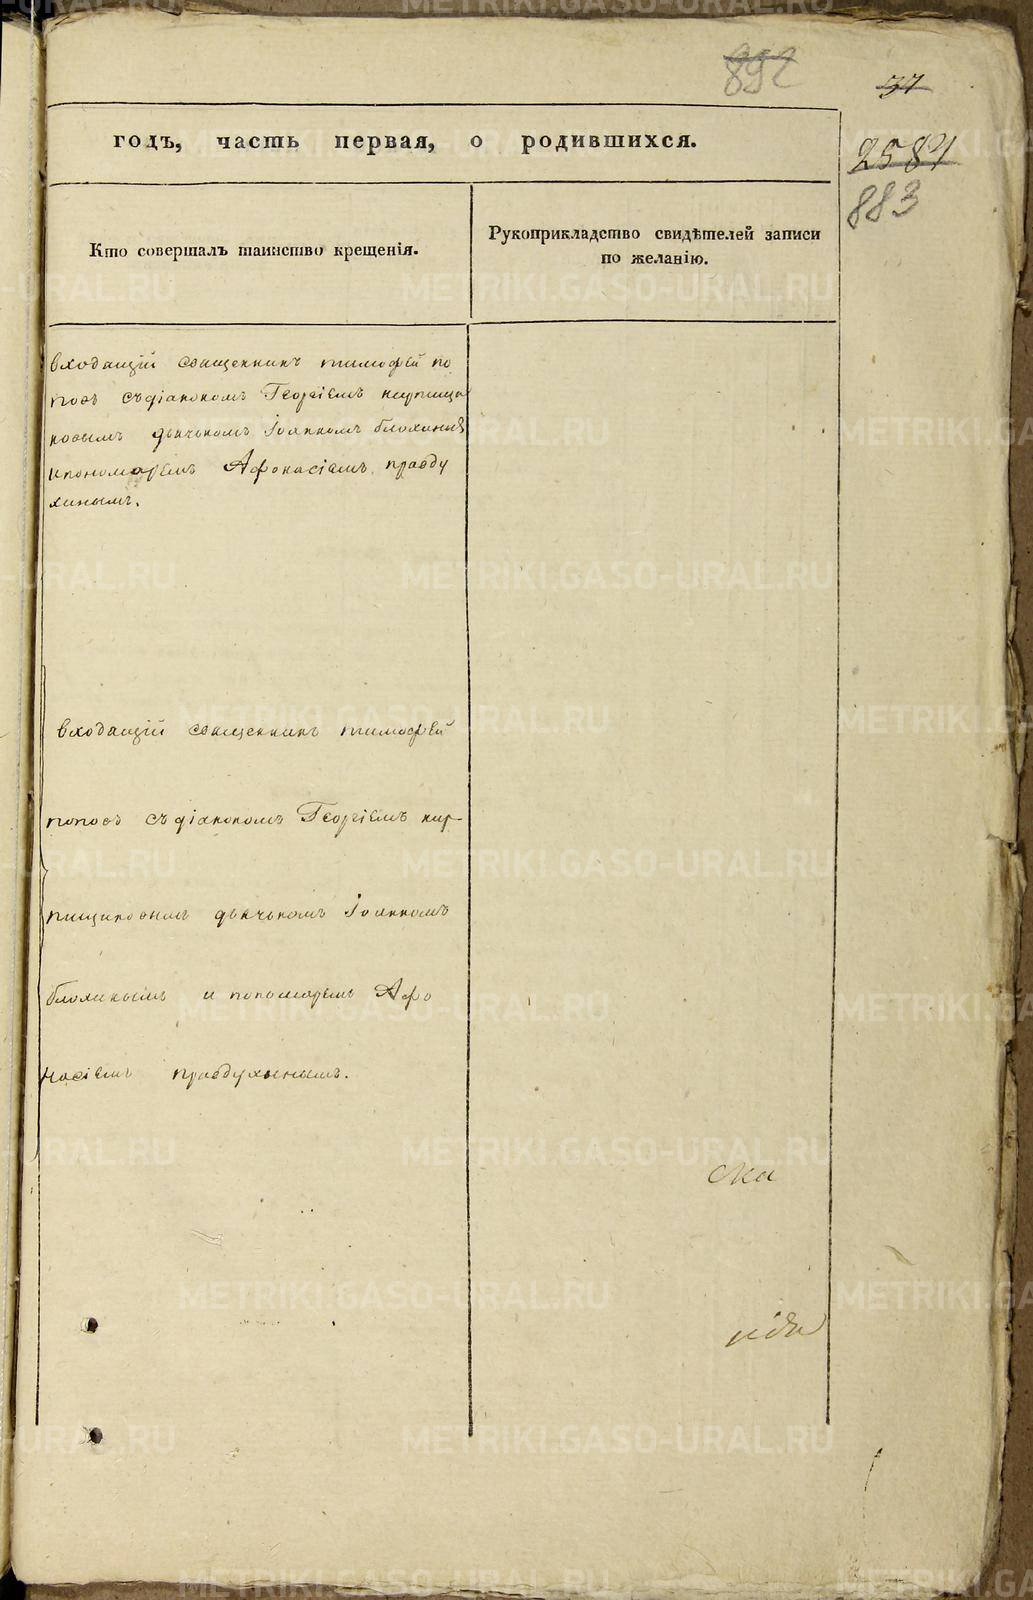 892
37
2584
883
годъ, часть первая, о родившихся.
Кто совершалъ таинство крещенія.
Рукоприкладство свидѣтелей записи
по желанію.
входащій священникъ тимофей по
повъ съдіакономъ Георгіемъ кирпищи
ковымъ дьячькомъ Іоанномъ блохинымъ
ипономаремъ Афонасіемъ правду
хинымъ.
входащій священникъ тимофей
поповъ съ діакономъ Георгіемъ кир-
пищиковымъ дьячькомъ Іоанномъ
блохинымъ и пономаремъ Афо
насіемъ правдухинымъ.
METRIKI.GASO-URAL.RU